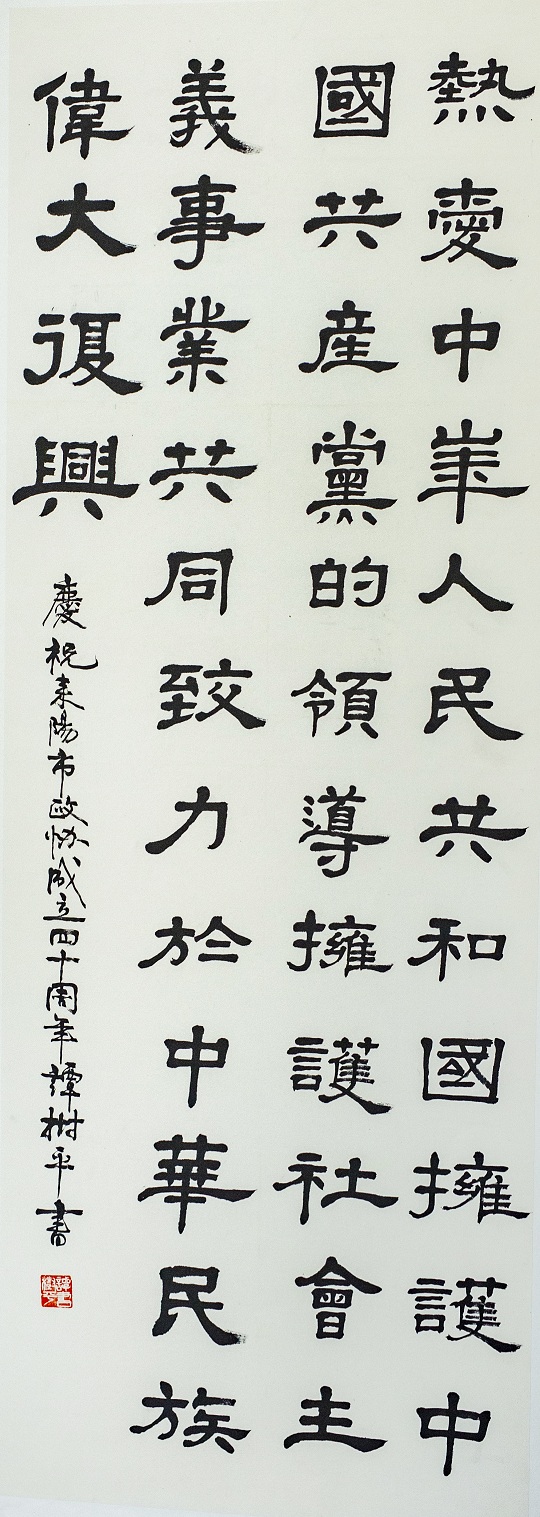 熱愛中華人民共和國擁護中
國共產黨的領導擁護社會主
義事業共同致力於中華民族
偉大復興
慶祝耒陽市政協成立四十周年譚樹平書